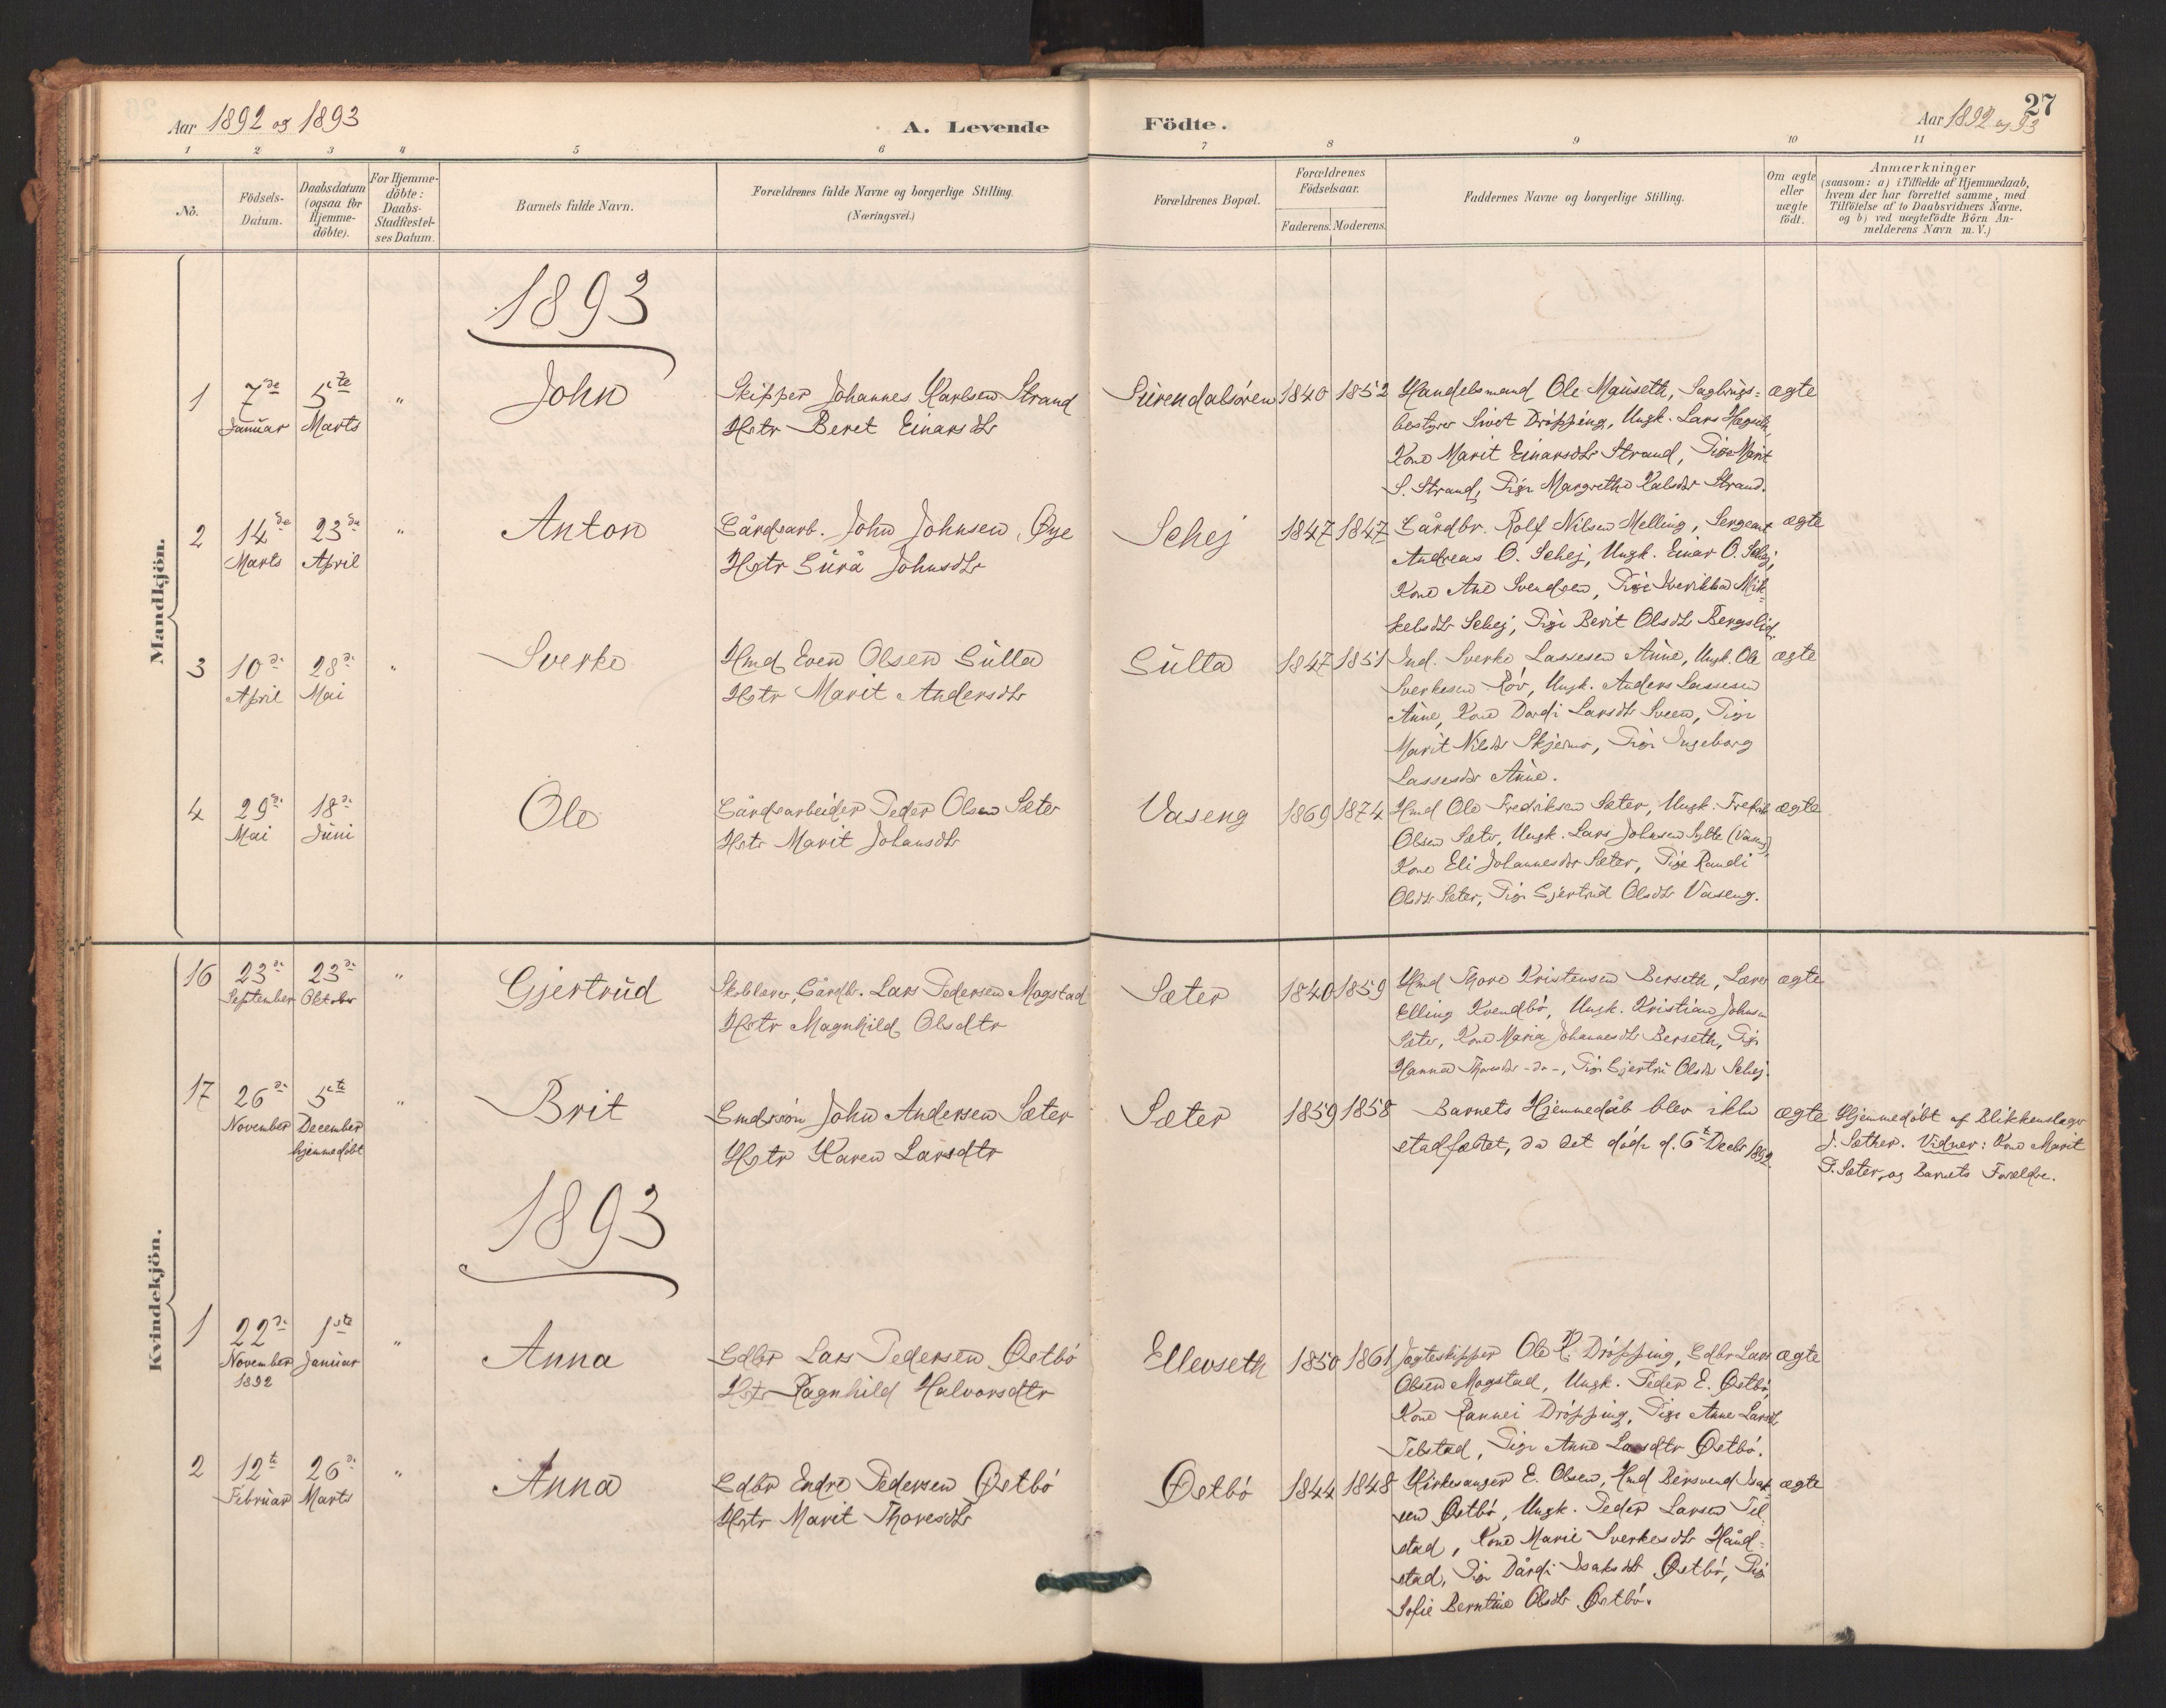 Aar 1892 og 1893
A. Levende Födte.
Aar 1892 og 93
27
1 2 3 4 5 6 7 8 9 10 11
No.
Födsels-
Datum.
Daabsdatum
(ogsaa for
Hjemme-
döbte).
For Hjemme-
döbte:
Daabs-
Stadfæstel-
ses Datum.
Barnets fulde Navn.
Forældrenes fulde Navne og borgerlige Stilling.
(Næringsvei.)
Forældrenes Bopæl.
Forældrenes
Födselsaar.
Faderens. Moderens.
Faddernes Navne og borgerlige Stilling.
Om ægte
eller
uægte
födt.
Anmærkninger
(saasom: a) i Tilfælde af Hjemmedaab,
hvem der har forrettet samme, med
Tilföielse af to Daabsvidners Navne.
og b) ved uægtefödte Börn An-
melderens Navn m. V.)
Mandkjön.
1893
1
7de
Januar
5te
Marts
"
John
Skipper Johannes Karlsen Strand
Hstr Beret Einarsdtr
Surendalsøren
1840
1852
Handelsmand Ole Mauseth, Sagbrugs=
bestyrer Sivert Drøpping, Ungk. Lars
Kone Marit Einarsdtr Strand, Pige Marit
S. Strand, Pige Margrethe Strand.
ægte
2
14de
Marts
23de
April
"
Anton
Gårdsarb. John Johnsen Øye
Hstr Gurå Johnsdtr
Schej
1847
1847
Gårdbr. Rolf Nilsen Melling, Sergeant
Andreas O. Schej, Ungk. Einar O. Schej,
Kone Ane Svendsen, Pige Mik=
kelsdtr Schej, Pige Berit Olsdtr Bergslid.
ægte
3
10de
April
28de
Mai
"
Sverke
Hmd Even Olsen Gulla
Hstr Marit Andersdtr
Gulla
1847
1851
Ind. Sverke Lassesen Aune, Ungk. Ole
Sverkesen Røv, Ungk. Anders Lassesen
Aune, Kone Dordi Larsdtr Sveen, Pige
Marit Nilsdtr Skjermo, Pige Ingeborg
Lassesdtr Aune.
ægte
4
29de
Mai
18de
Juni
Ole
Gårdsarbeider Peder Olsen Sæter
Hstr Marit Johansdtr
Vaseng
1869
1874
Hmd Ole Fredriksen Sæter, Ungk. Fredrik
Olsen Sæter, Ungk. Lars Johnsen Sylte (Vaseng),
Kone Eli Johannesdtr Sæter, Pige Randi
Olsdtr Sæter, Pige Gjertrud Olsdtr Vaseng.
ægte
Kvindekjön.
16
23de
September
23de
Oktober
"
Gjertrud
Skolelærer, Gårdbr. Lars Pedersen Mogstad
Hstr Magnhild Olsdtr
Sæter
1840
1859
Hmd Thore Kristensen Berseth, Lærer
Elling Kvendbø, Ungk. Kristian Johnsen
Sæter, Kone Maria Johannesdtr Berseth, Pige
Hanna Thoresdtr -do-, Pige Gjertru Olsdtr Schej.
ægte
17
26de
November
5te
December
hjemmedøbt
"
Brit
Gmdssøn John Andersen Sæter
Hstr Karen Larsdtr
Sæter
1859
1858
Barnets Hjemmedåb blev ikke
stadfæstet, da det døde d. 6te Decbr 1892.
ægte
Hjemmedøbt af Blikkenslager
J. Sæther. Vidner: Kone Marit
P. Sæter, og Barnets Forældre.
1893
1
22de
November
1892
1ste
Januar
"
Anna
Gdbr Lars Pedersen Østbø
Hstr Ragnhild Halvorsdtr
Ellevseth
1850
1861
Jagteskipper Ole P. Drøpping, Gdbr Lars
Olsen Mogstad, Ungk. Peder E. Østbø,
Kone Rannei Drøpping, Pige Anne Larsdtr
Telstad, Pige Anne Larsdtr Østbø.
ægte
2
12te
Februar
26de
Marts
"
Anna
Gdbr Endre Pedersen Østbø
Hstr Marit Thoresdtr
Østbø
1844
1848
Kirkesanger E. Olsen, Hmd Bersvend Isak=
sen Østbø, Ungk. Peder Larsen Tel=
stad, Kone Marie Sverkesdtr Hånd=
stad, Pige Dårdi Isaksdtr Østbø, Pige
Sofie Berntine Olsdtr Østbø.
ægte